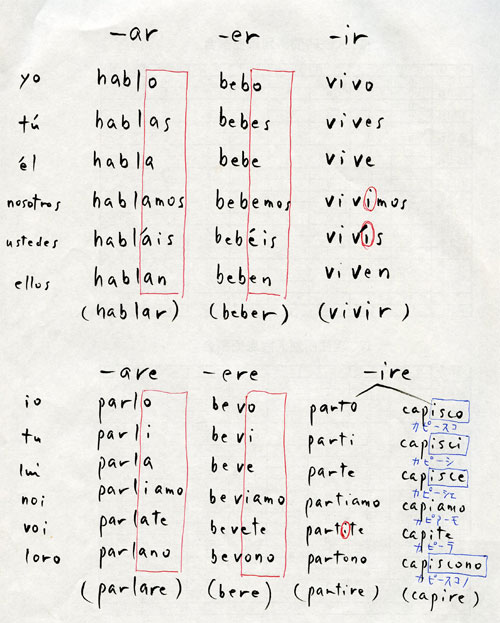 -ar -er -ir
yo hablo bebo vivo
tú hablas bebes vives
él habla bebe vive
nosotros hablamos bebemos vivimos
ustedes habláis bebéis vivís
ellos hablan beben viven
(hablar) (beber) (vivir)
-are -ere -ire
io parlo bevo parto capisco
カピースコ
tu parli bevi parti capisci
カピーシ
lui parla beve parte capisce
カピーシェ
noi parliamo beviamo partiamo capiamo
カピアーモ
voi parlate bevete partite capite
カピーテ
loro parlano bevono partono capiscono
カピースコノ
(parlare) (bere) (partire) (capire)